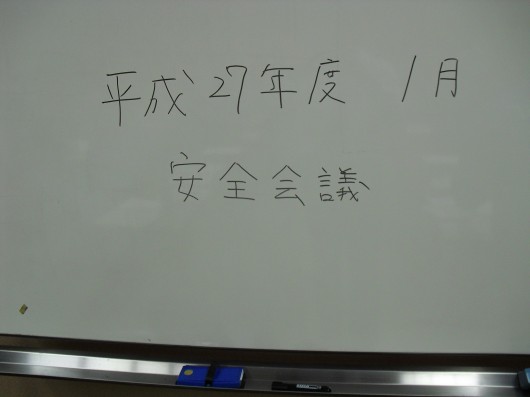 平成27年度 1月
安全会議